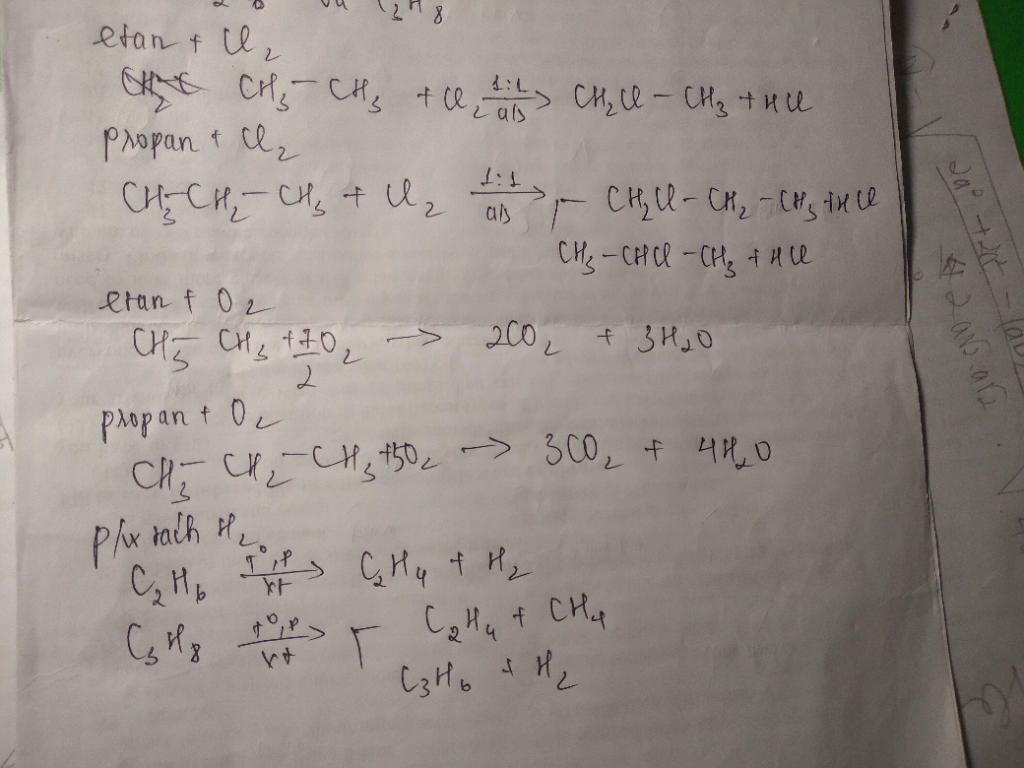 và C₃H₈
etan + Cl₂
CH₃ – CH₃ + Cl₂ 1:1 a/s → CH₂Cl – CH₃ + HCl
propan + Cl₂
CH₃ – CH₂ – CH₃ + Cl₂ 1:1 a/s → CH₂Cl – CH₂ – CH₃ + HCl
CH₃ – CHCl – CH₃ + HCl
etan + O₂
CH₃ – CH₃ + 7/2 O₂ → 2CO₂ + 3H₂O
propan + O₂
CH₃ – CH₂ – CH₃ + 5O₂ → 3CO₂ + 4H₂O
p/ư tách H₂
C₂H₆ t⁰, p xt → C₂H₄ + H₂
C₃H₈ t⁰, p xt → C₂H₄ + CH₄
C₃H₆ + H₂